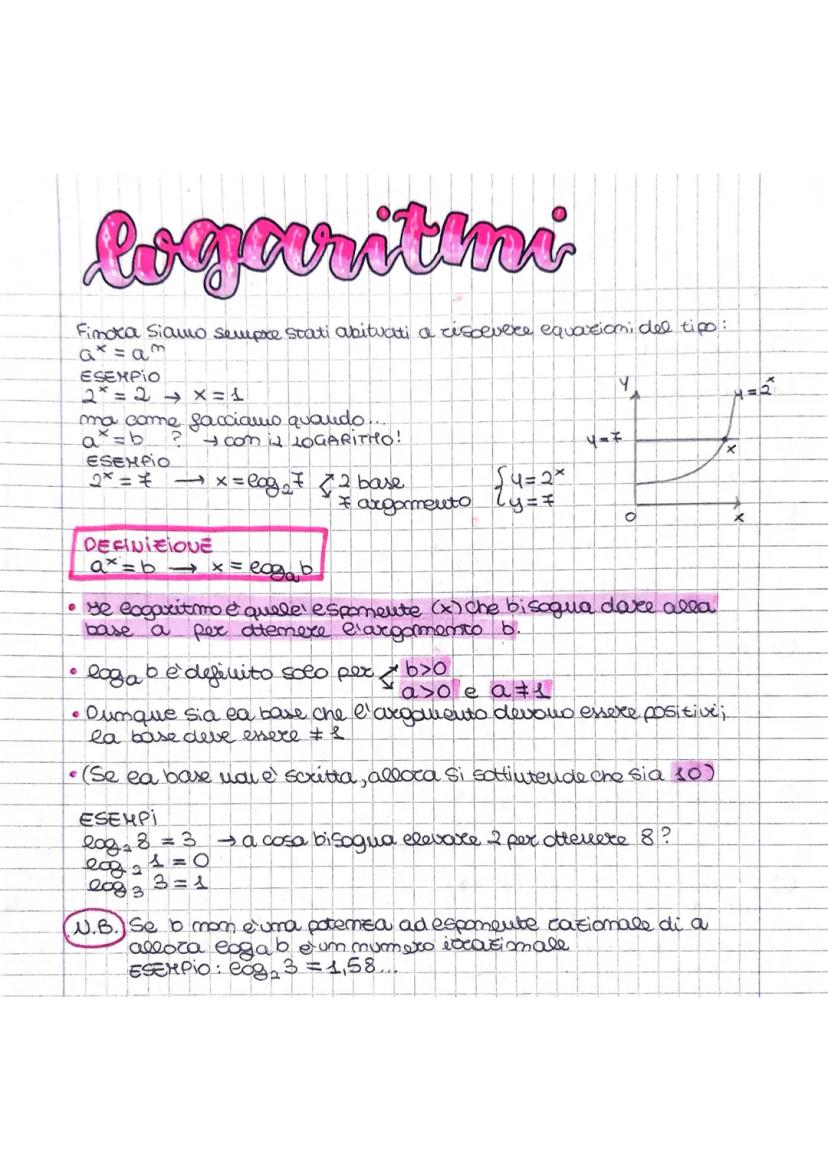 logaritmi
Finora siamo sempre stati abituati a risolvere equazioni del tipo:
aˣ = aᵐ
ESEMPIO
2ˣ = 2 → x = 1
ma come facciamo quando...
aˣ = b ? → con il LOGARITMO!
ESEMPIO
2ˣ = 7 → x = log₂7 2 base
7 argomento
{ y = 2ˣ
y = 7
y
y = 2ˣ
y = 7
x
O
x
DEFINIZIONE
aˣ = b → x = logₐb
• Il logaritmo è quell'esponente (x) che bisogna dare alla
base a per ottenere l'argomento b.
• logₐb è definito solo per b>0
a>0 e a≠1
• Dunque sia la base che l'argomento devono essere positivi;
la base deve essere ≠ 1
• (Se la base non è scritta, allora si sottintende che sia 10)
ESEMPI
log₂8 = 3 → a cosa bisogna elevare 2 per ottenere 8?
log₂1 = 0
log₃3 = 1
N.B. Se b non è una potenza ad esponente razionale di a
allora logₐb è un numero irrazionale
ESEMPIO: log₂3 = 1,58...